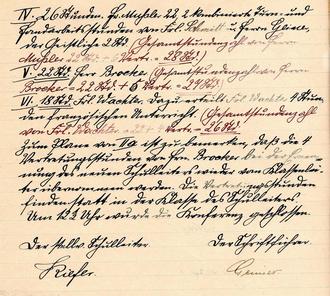 IV. 26 Stunden. H. Mußle 22, 2 kombinierte Turn- und
Handarbeitsstunden von Frl. Schmitt u. Herrn Heine,
der Geistliche 2 Std. (Gesamtstundenzahl von Herrn
Mußle = 22 + Vertr. = 28 Std!)
V. 22 Std. Herr Brocker (Gesamtstundenzahl von Herrn
Brocker = 22 Std. + 6 Vertr. =
VI. 18 Std. Frl. Wachter. Dazu erteilt Frl. Wachter 4 Stun.
der französischen Unterricht. (Gesamtstundenzahl
von Frl. Wachter = 22 + 4 Vertr. = 26 Std!)
Zum Plane von VII ist zu bemerken, daß die 4
Vertretungsstunden von Hrn. Brocker bei der
nung des neuen Schulleiters wieder vom Klassenlei-
ter übernommen werden. Die Vertretungsstunden
finden statt in der Klasse des Schulleiters.
Um 12 ½ Uhr wurde die Konferenz geschlossen.
Der stellv. Schulleiter
Der Schriftführer.
Kiefer.